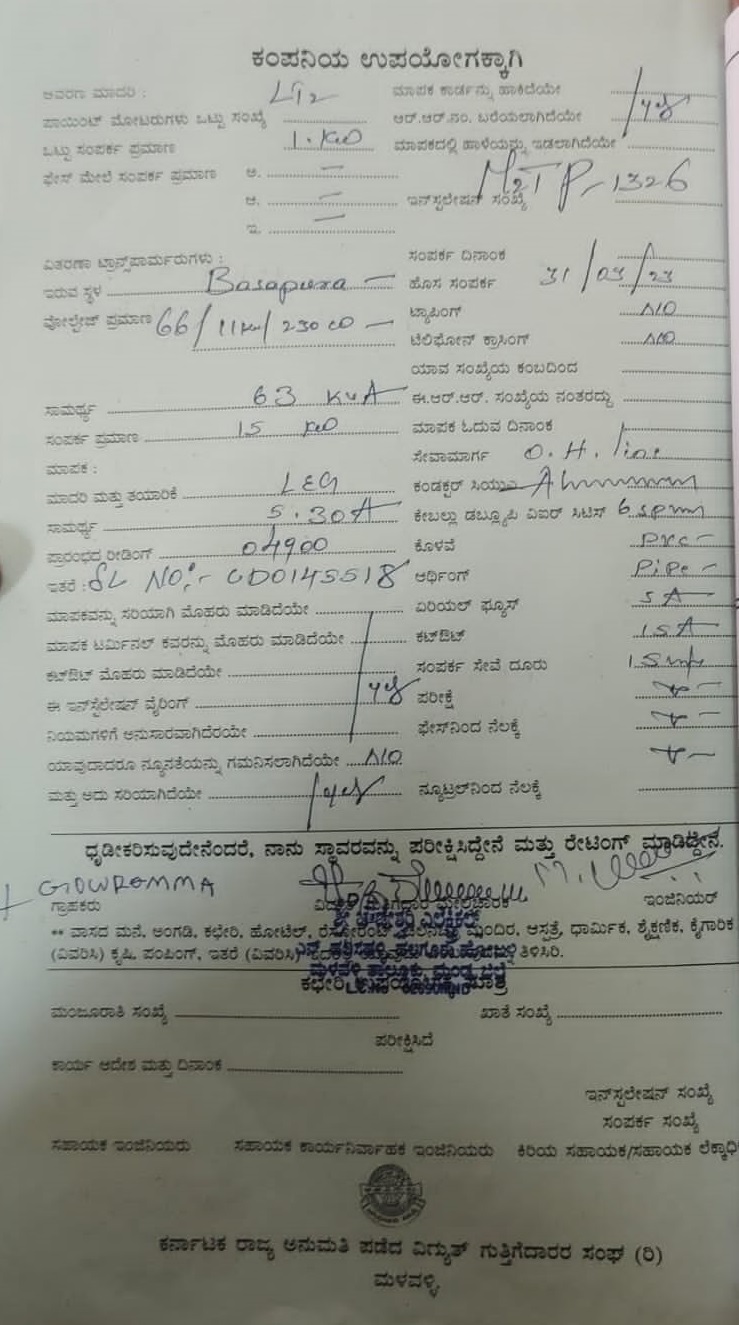 ಕಂಪನಿಯ ಉಪಯೋಗಕ್ಕಾಗಿ
ಆವರಣ ಮಾದರಿ : LT2 ಮಾಪಕ ಕಾರ್ಡನ್ನು ಹಾಕಿದೆಯೇ
ಪಾಯಿಂಟ್ ಮೋಟರುಗಳು ಒಟ್ಟು ಸಂಖ್ಯೆ ಆರ್.ಆರ್.ನಂ. ಬರೆಯಲಾಗಿದೆಯೇ yes
ಒಟ್ಟು ಸಂಪರ್ಕ ಪ್ರಮಾಣ 1. KW ಮಾಪಕದಲ್ಲಿ ಹಾಳೆಯನ್ನು ಇಡಲಾಗಿದೆಯೇ
ಫೇಸ್ ಮೇಲೆ ಸಂಪರ್ಕ ಪ್ರಮಾಣ ಅ. —
ಆ. — ಇನ್‌ಸ್ಟಲೇಷನ್ ಸಂಖ್ಯೆ M2TP-1326
ಇ. —
ವಿತರಣಾ ಟ್ರಾನ್ಸ್‌ಪಾರ್ಮರುಗಳು : ಸಂಪರ್ಕ ದಿನಾಂಕ
ಇರುವ ಸ್ಥಳ Basapura — ಹೊಸ ಸಂಪರ್ಕ 31/03/23
ವೋಲ್ಟೇಜ್ ಪ್ರಮಾಣ 66/11KV/230 — ಟ್ಯಾಪಿಂಗ್ NO
ಟೆಲಿಫೋನ್ ಕ್ರಾಸಿಂಗ್ NO
ಯಾವ ಸಂಖ್ಯೆಯ ಕಂಬದಿಂದ
ಸಾಮರ್ಥ್ಯ 63 KVA ಈ.ಆರ್.ಆರ್. ಸಂಖ್ಯೆಯ ನಂತರದ್ದು
ಸಂಪರ್ಕ ಪ್ರಮಾಣ 15 KW ಮಾಪಕ ಓದುವ ದಿನಾಂಕ
ಮಾಪಕ : ಸೇವಾಮಾರ್ಗ O.H. line
ಮಾದರಿ ಮತ್ತು ತಯಾರಿಕೆ L&G ಕಂಡಕ್ಟರ್ ಸಿಯು
ಸಾಮರ್ಥ್ಯ 5.30A ಕೇಬಲ್ಲು ಡಬ್ಲ್ಯೂಪಿ ವಿಐರ್ ಸಿಟಿಸ್
ಪ್ರಾರಂಭದ ರೀಡಿಂಗ್ 04900 ಕೊಳವೆ PVC —
ಇತರೆ : SL NO:- CD0145518 ಅರ್ಥಿಂಗ್ Pipe —
ಮಾಪಕವನ್ನು ಸರಿಯಾಗಿ ಮೊಹರು ಮಾಡಿದೆಯೇ ಏರಿಯಲ್ ಫ್ಯೂಸ್ 5A
ಮಾಪಕ ಟರ್ಮಿನಲ್ ಕವರನ್ನು ಮೊಹರು ಮಾಡಿದೆಯೇ ಕಟ್‌ಔಟ್ 15A
ಕಟ್‌ಔಟ್ ಮೊಹರು ಮಾಡಿದೆಯೇ ಸಂಪರ್ಕ ಸೇವೆ ದೂರು
ಈ ಇನ್‌ಸ್ಟಲೇಷನ್ ವೈರಿಂಗ್ yes ಪರೀಕ್ಷೆ
ನಿಯಮಗಳಿಗೆ ಅನುಸಾರವಾಗಿದೆರಯೇ ಫೇಸ್‌ನಿಂದ ನೆಲಕ್ಕೆ
ಯಾವುದಾದರೂ ನ್ಯೂನತೆಯನ್ನು ಗಮನಿಸಲಾಗಿದೆಯೇ NO
ಮತ್ತು ಅದು ಸರಿಯಾಗಿದೆಯೇ yes ನ್ಯೂಟ್ರಲ್‌ನಿಂದ ನೆಲಕ್ಕೆ
ಧೃಡೀಕರಿಸುವುದೇನೆಂದರೆ, ನಾನು ಸ್ಥಾವರವನ್ನು ಪರೀಕ್ಷಿಸಿದ್ದೇನೆ ಮತ್ತು ರೇಟಿಂಗ್ ಮಾಡಿದ್ದೇನೆ.
GOWRAMMA
ಗ್ರಾಹಕರು ಇಂಜಿನಿಯರ್
** ವಾಸದ ಮನೆ, ಅಂಗಡಿ, ಕಛೇರಿ, ಹೋಟೆಲ್, ಮಂದಿರ, ಆಸ್ಪತ್ರೆ, ಧಾರ್ಮಿಕ, ಶೈಕ್ಷಣಿಕ, ಕೈಗಾರಿಕ
(ವಿವರಿಸಿ) ಕೃಷಿ, ಪಂಪಿಂಗ್, ಇತರೆ (ವಿವರಿಸಿ) ತಿಳಿಸಿರಿ.
ಕಛೇರಿ ಉಪಯೋಗಕ್ಕೆ ಮಾತ್ರ
ಮಂಜೂರಾತಿ ಸಂಖ್ಯೆ ಖಾತೆ ಸಂಖ್ಯೆ
ಪರೀಕ್ಷಿಸಿದೆ
ಕಾರ್ಯ ಆದೇಶ ಮತ್ತು ದಿನಾಂಕ
ಇನ್‌ಸ್ಟಲೇಷನ್ ಸಂಖ್ಯೆ
ಸಂಪರ್ಕ ಸಂಖ್ಯೆ
ಸಹಾಯಕ ಇಂಜಿನಿಯರು ಸಹಾಯಕ ಕಾರ್ಯನಿರ್ವಾಹಕ ಇಂಜಿನಿಯರು ಕಿರಿಯ ಸಹಾಯಕ/ಸಹಾಯಕ
ಕರ್ನಾಟಕ ರಾಜ್ಯ ಅನುಮತಿ ಪಡೆದ ವಿದ್ಯುತ್ ಗುತ್ತಿಗೆದಾರರ ಸಂಘ (ರಿ)
ಮಳವಳ್ಳಿ